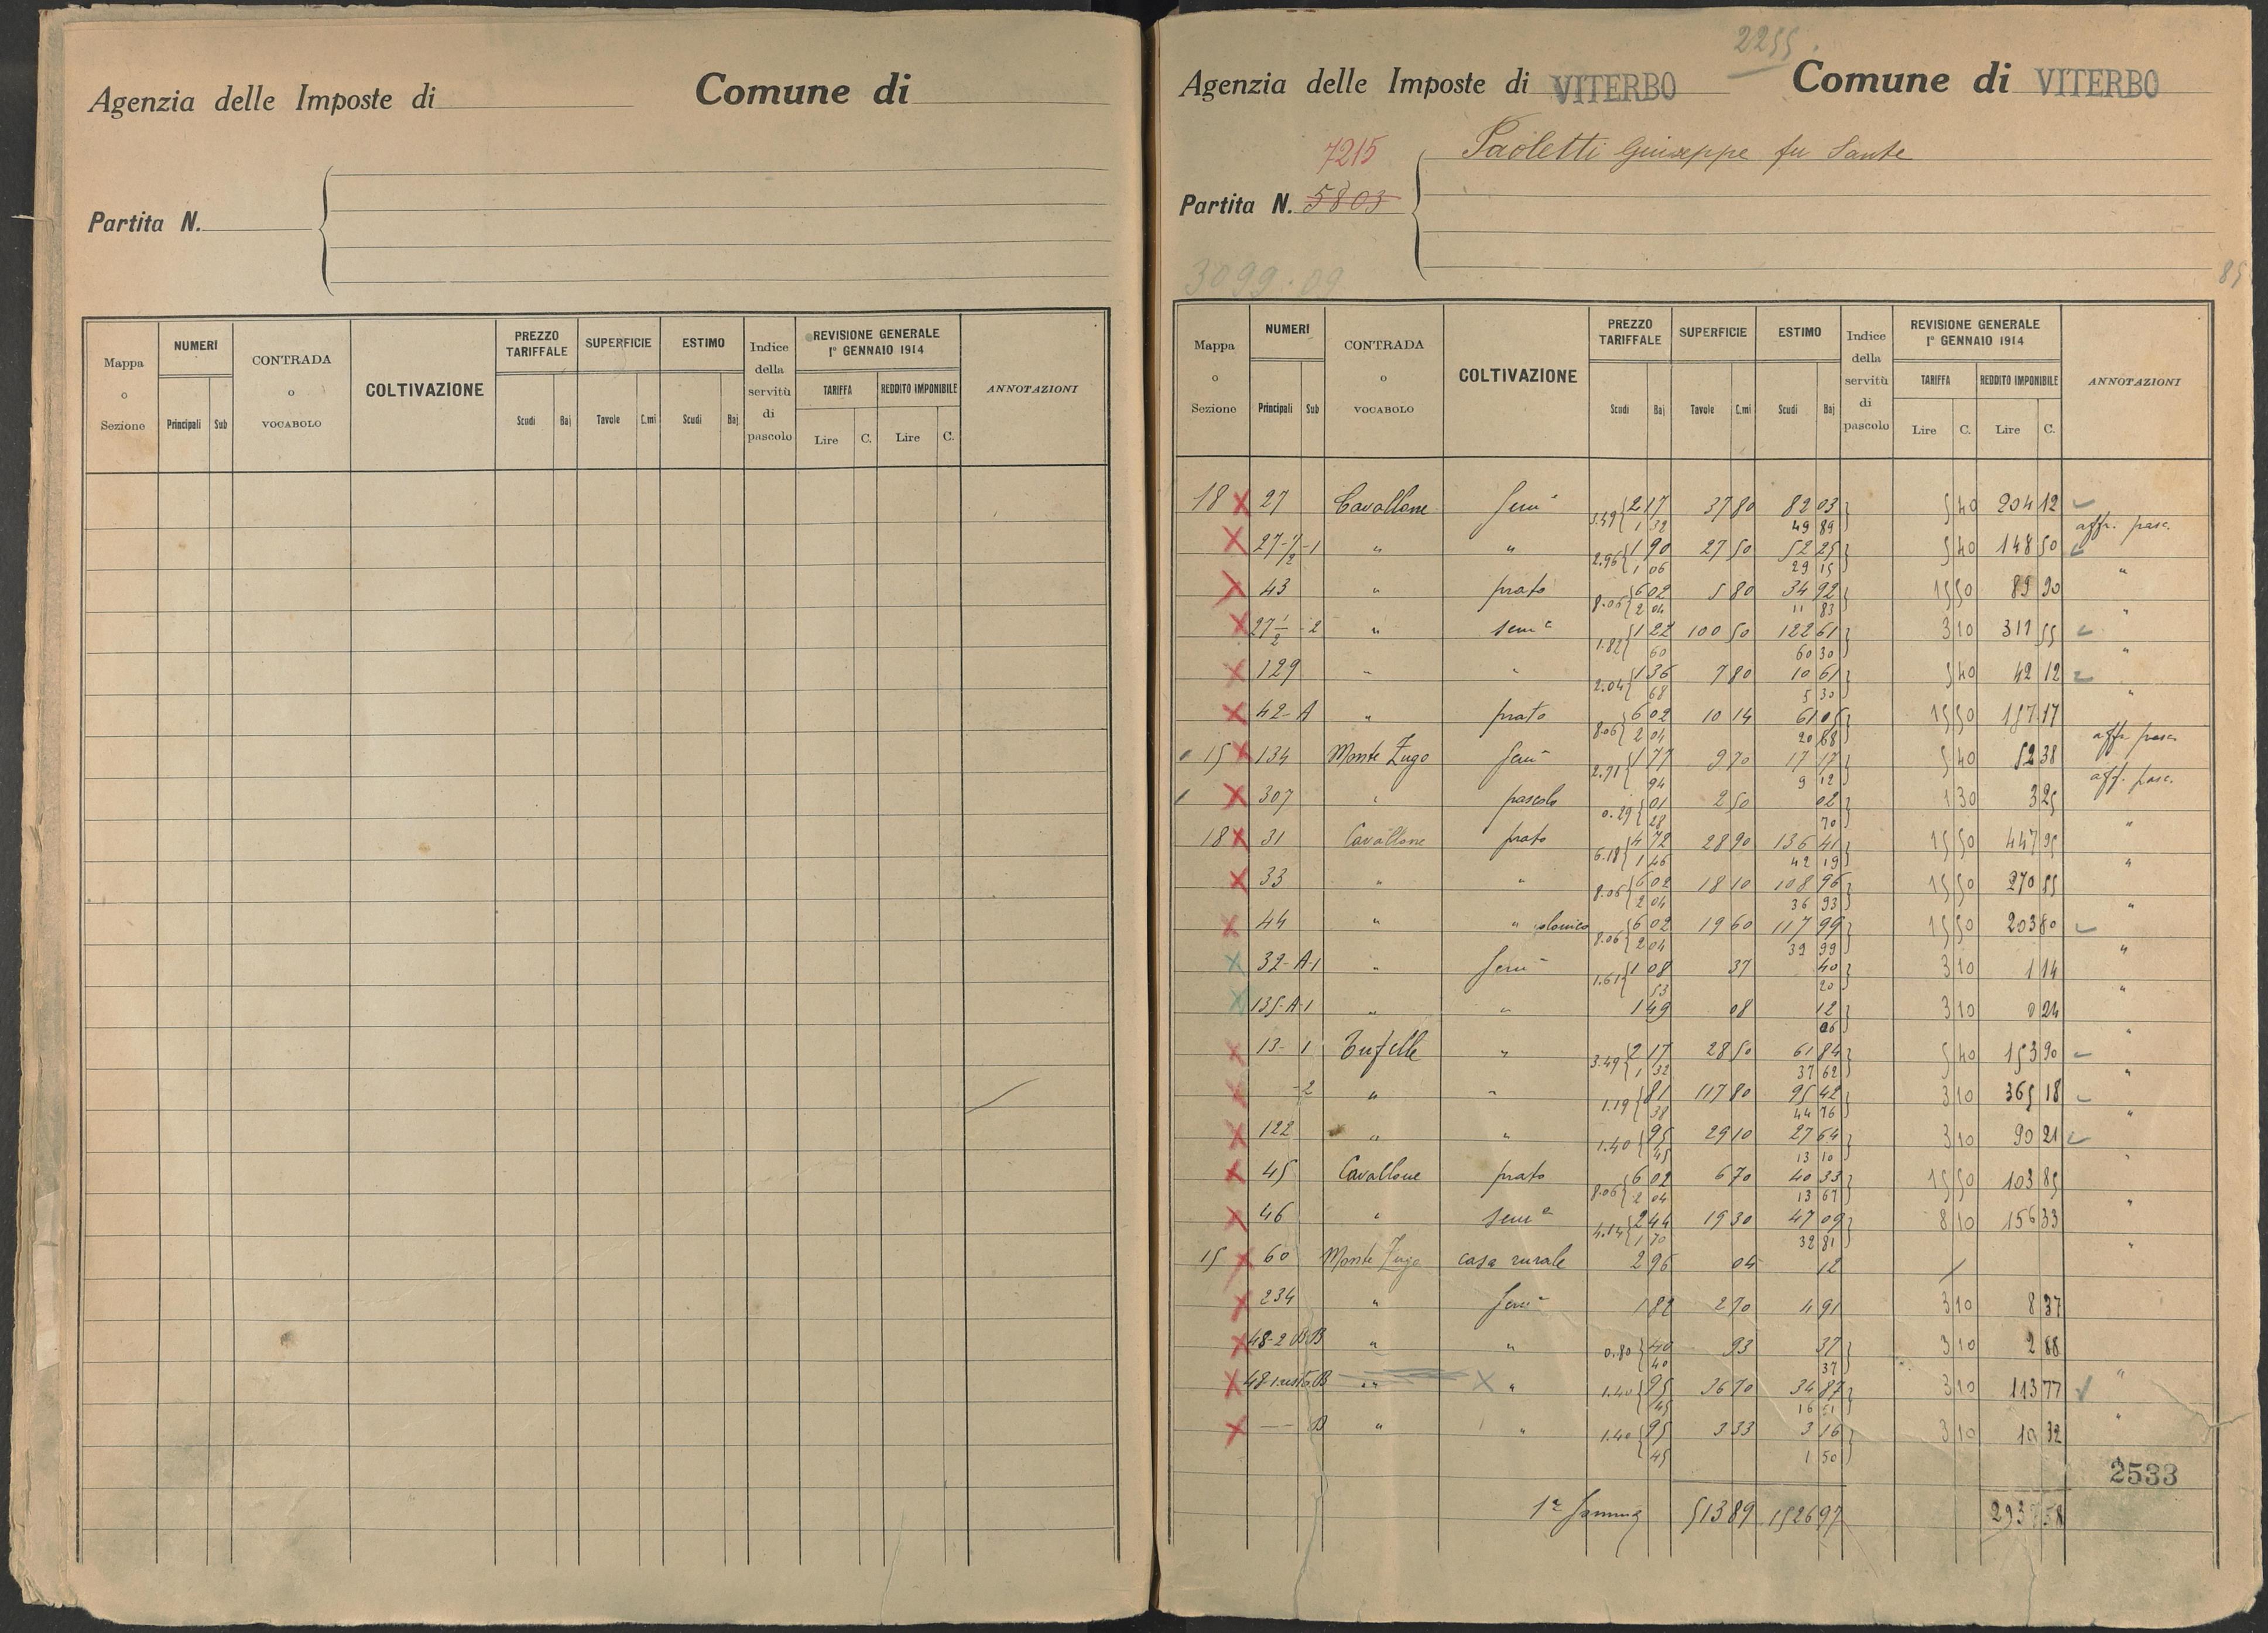 Agenzia delle Imposte di Comune di
Partita N.
Mappa o Sezione NUMERI Principali Sub CONTRADA o VOCABOLO COLTIVAZIONE PREZZO TARIFFALE Scudi Baj SUPERFICIE Tavole C.mi ESTIMO Scudi Baj Indice della servitù di pascolo REVISIONE GENERALE 1° GENNAIO 1914 TARIFFA Lire C. REDDITO IMPONIBILE Lire C. ANNOTAZIONI
2255.
Agenzia delle Imposte di VITERBO Comune di VITERBO
7215 Paoletti Giuseppe fu Sante
Partita N. 5803
3099.09
85
Mappa o Sezione NUMERI Principali Sub CONTRADA o VOCABOLO COLTIVAZIONE PREZZO TARIFFALE Scudi Baj SUPERFICIE Tavole C.mi ESTIMO Scudi Baj Indice della servitù di pascolo REVISIONE GENERALE 1° GENNAIO 1914 TARIFFA Lire C. REDDITO IMPONIBILE Lire C. ANNOTAZIONI
18 X 27 Cavallone 3.49 { 2 17 37 80 82 03 } 5 40 204 12
1 32 49 89 aff. pasc.
X 27-1/2-1 " " 2.96 { 1 90 27 50 52 25 } 5 40 148 50
1 06 29 15 "
X 43 " prato 8.06 { 6 02 5 80 34 92 } 15 50 89 90
2 04 11 83 "
X 27 1/2 - 2 " sem 1.82 { 1 22 100 50 122 61 } 3 10 311 55
60 60 30 "
X 129 " " 2.04 { 1 36 7 80 10 61 } 5 40 42 12
68 5 30 "
X 42-A " prato 8.06 { 6 02 10 14 61 05 } 15 50 157 17
2 04 20 68 aff. pasc.
15 X 134 Monte Zugo 2.71 { 1 77 9 70 17 17 } 5 40 52 38
94 9 12 aff. pasc.
X 307 " pascolo 0.29 { 01 2 50 02 } 1 30 3 25
28 70 "
18 X 31 Cavallone prato 6.18 { 4 72 28 90 136 41 } 15 50 447 95
1 46 42 19 "
X 33 " " 8.06 { 6 02 18 10 108 96 } 15 50 270 55
2 04 36 93 "
X 44 " " 8.06 { 6 02 19 60 117 99 } 15 50 203 80
2 04 39 99 "
X 32-A-1 " 1.61 { 1 08 37 40 } 3 10 1 14
53 20 "
X 135-A-1 " " 1 49 08 12 } 3 10 0 24
06 "
X 13- 1 Tufelle " 3.49 { 2 17 28 50 61 84 } 5 40 153 90
1 32 37 62 "
X -2 " " 1.19 { 81 117 80 95 42 } 3 10 365 18
38 44 76 "
X 122 " " 1.40 { 95 29 10 27 64 } 3 10 90 21
45 13 10 "
X 45 Cavallone prato 8.06 { 6 02 6 70 40 33 } 15 50 103 85
2 04 13 67 "
X 46 " sem 4.14 { 2 44 19 30 47 09 } 8 10 156 33
1 70 32 81 "
15 X 60 Monte Zugo casa rurale 2 96 04 12 /
X 234 " 1 82 2 70 4 91 3 10 8 37
X 48-2 " " 0.80 { 40 93 37 } 3 10 2 88
40 37 "
X 48-1 resto B " X " 1.40 { 95 36 70 34 87 } 3 10 113 77
45 16 51 "
X — B " " 1.40 { 95 3 33 3 16 } 3 10 10 32
45 1 50
2533
1ª Somma 513 89 1526 97 2937 58